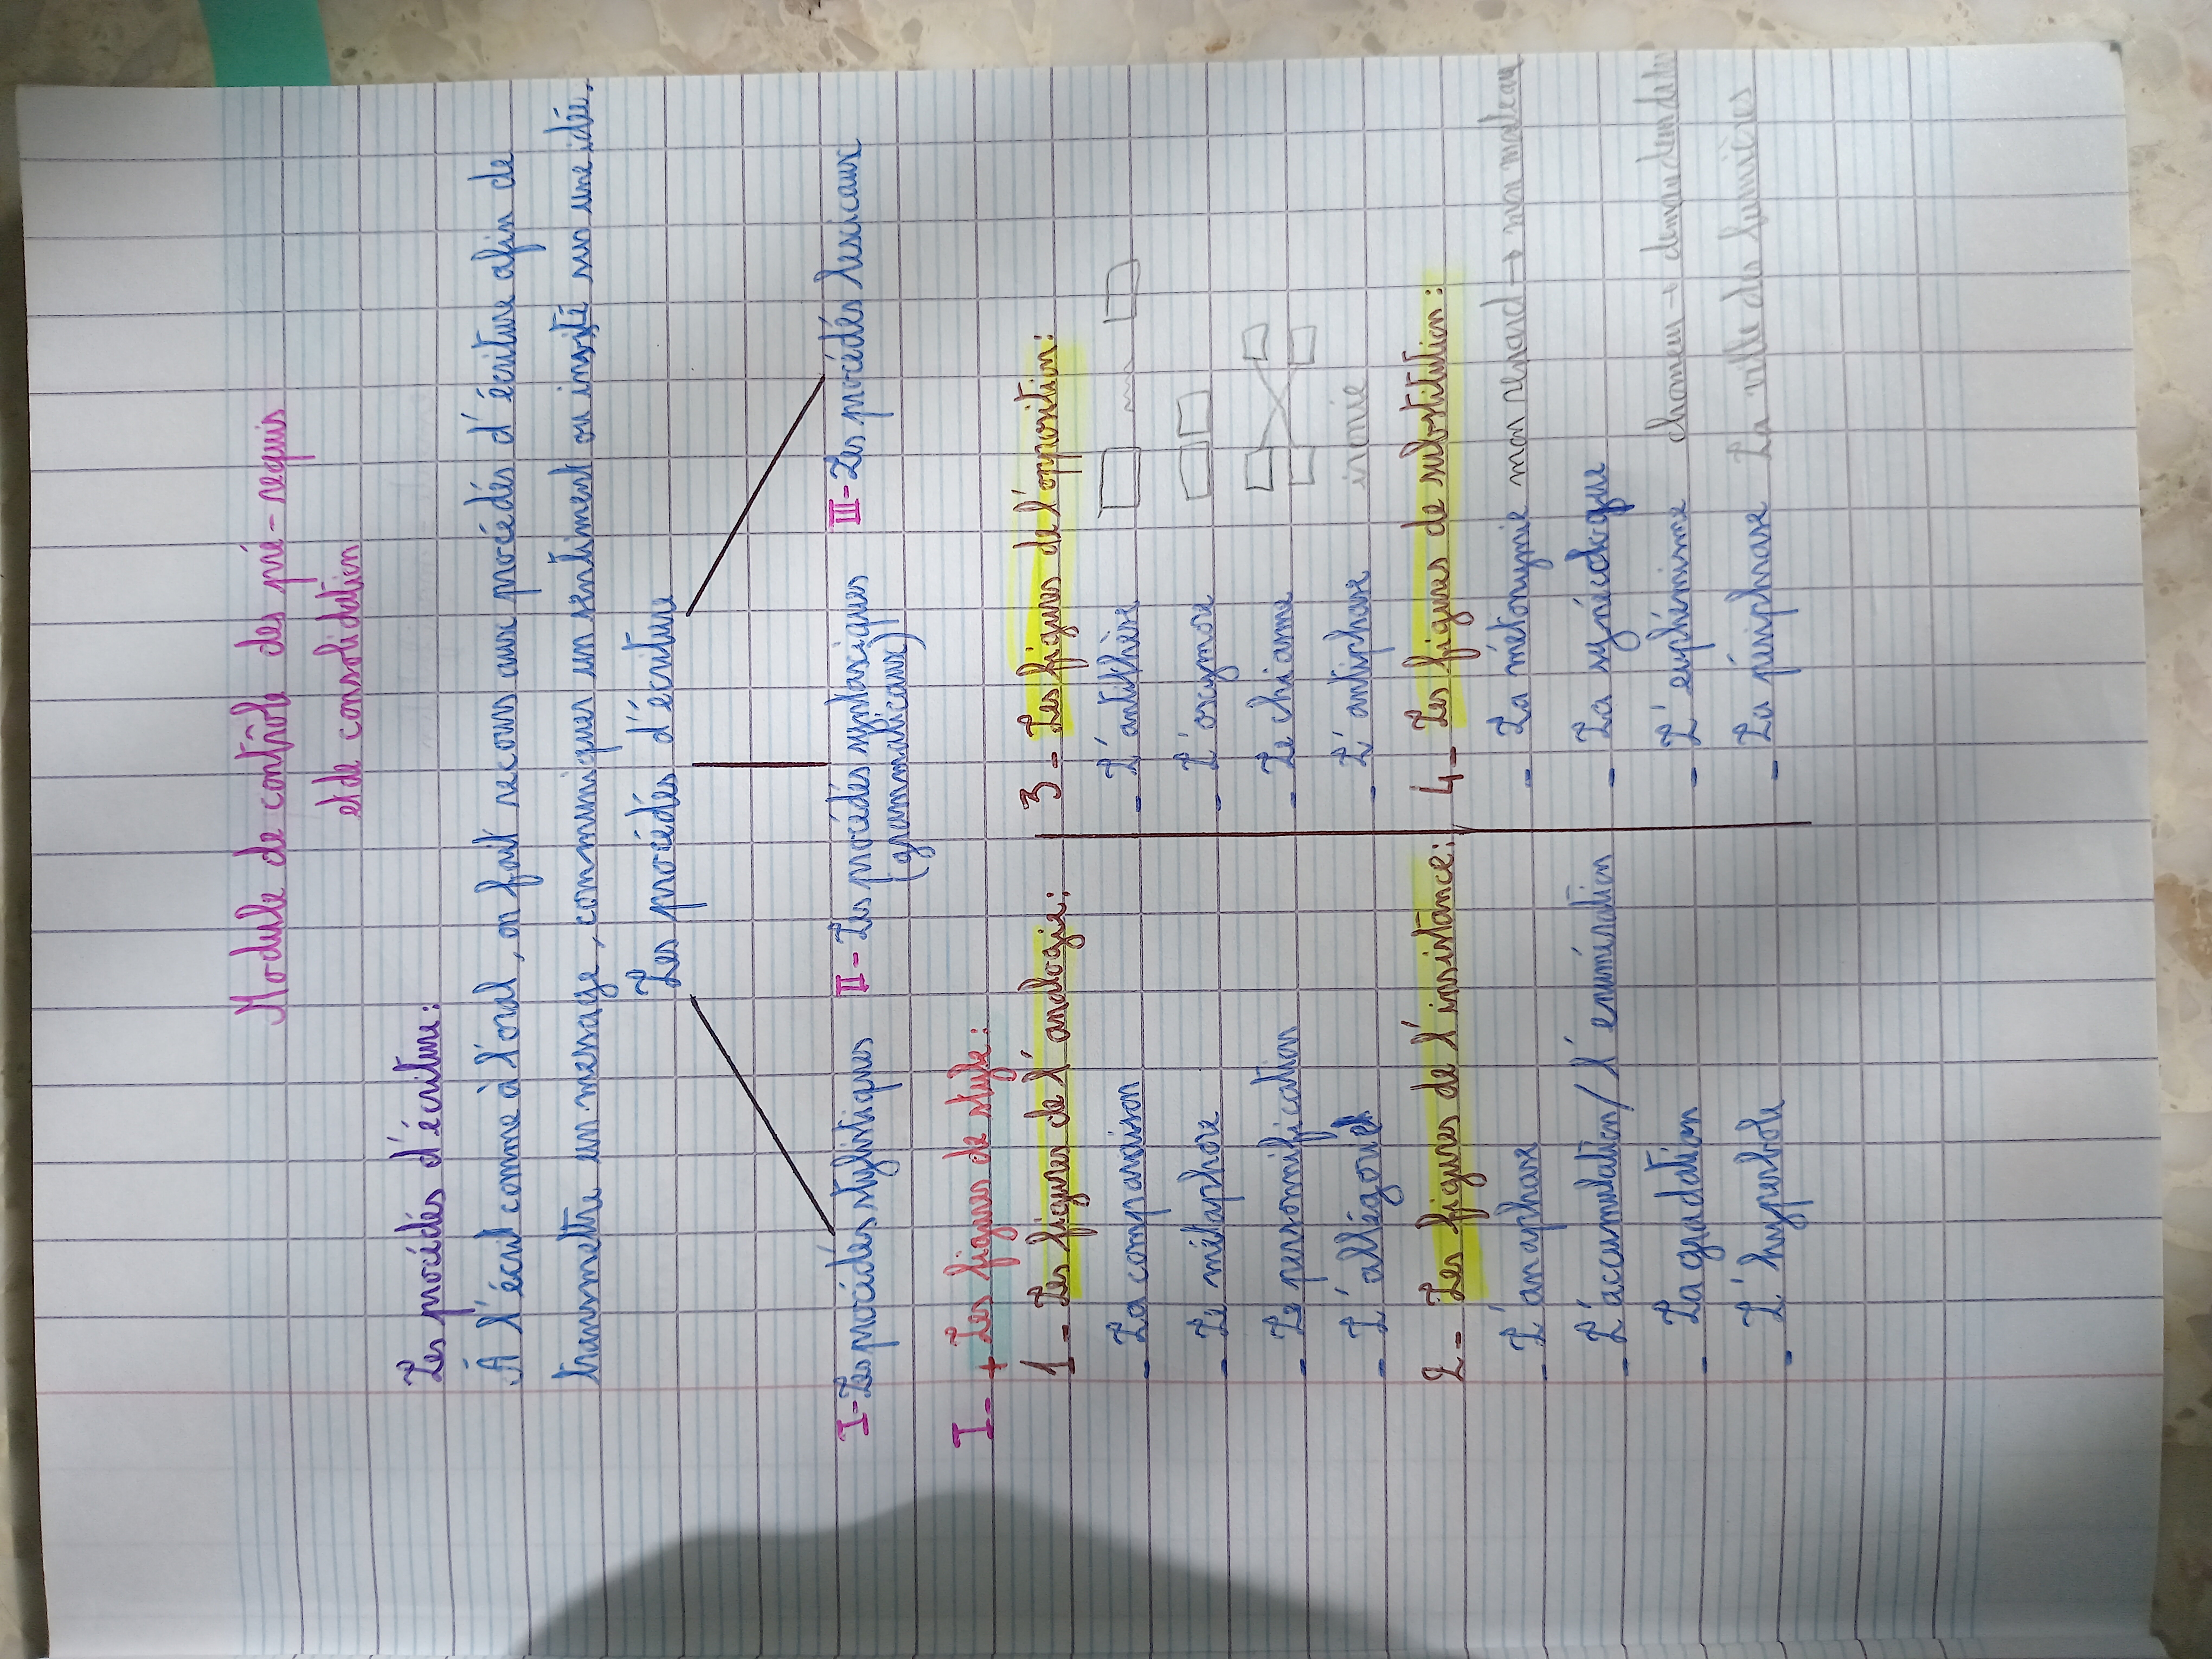 Module de contrôle des pré-requis
et de consolidation
Les procédés d'écriture:
À l'écrit comme à l'oral, on fait recours aux procédés d'écriture afin de
transmettre un message, communiquer un sentiment ou insisté sur une idée.
Les procédés d'écriture
I-Les procédés stylistiques
II-Les procédés syntaxiques
(grammaticaux)
III-Les procédés lexicaux
I-+ Les figures de style:
1-Les figures de l'analogie:
- La comparaison
- Le métaphore
- Le personnification
- L'allégorie
2-Les figures de l'insistance:
- L'anaphore
- L'accumulation/ l'enumération
- La gradation
- L'hyperbole
3-Les figures de l'opposition:
- L'antithèse
- L'oxymore
- Le chiasme
- L'antiphrase ironie
4-Les figures de substitution:
- La métonymie mon renard → mon mateau
- La synécdoque
- L'euphémisme chomeur → demandeur de
- La périphrase La ville des lumières